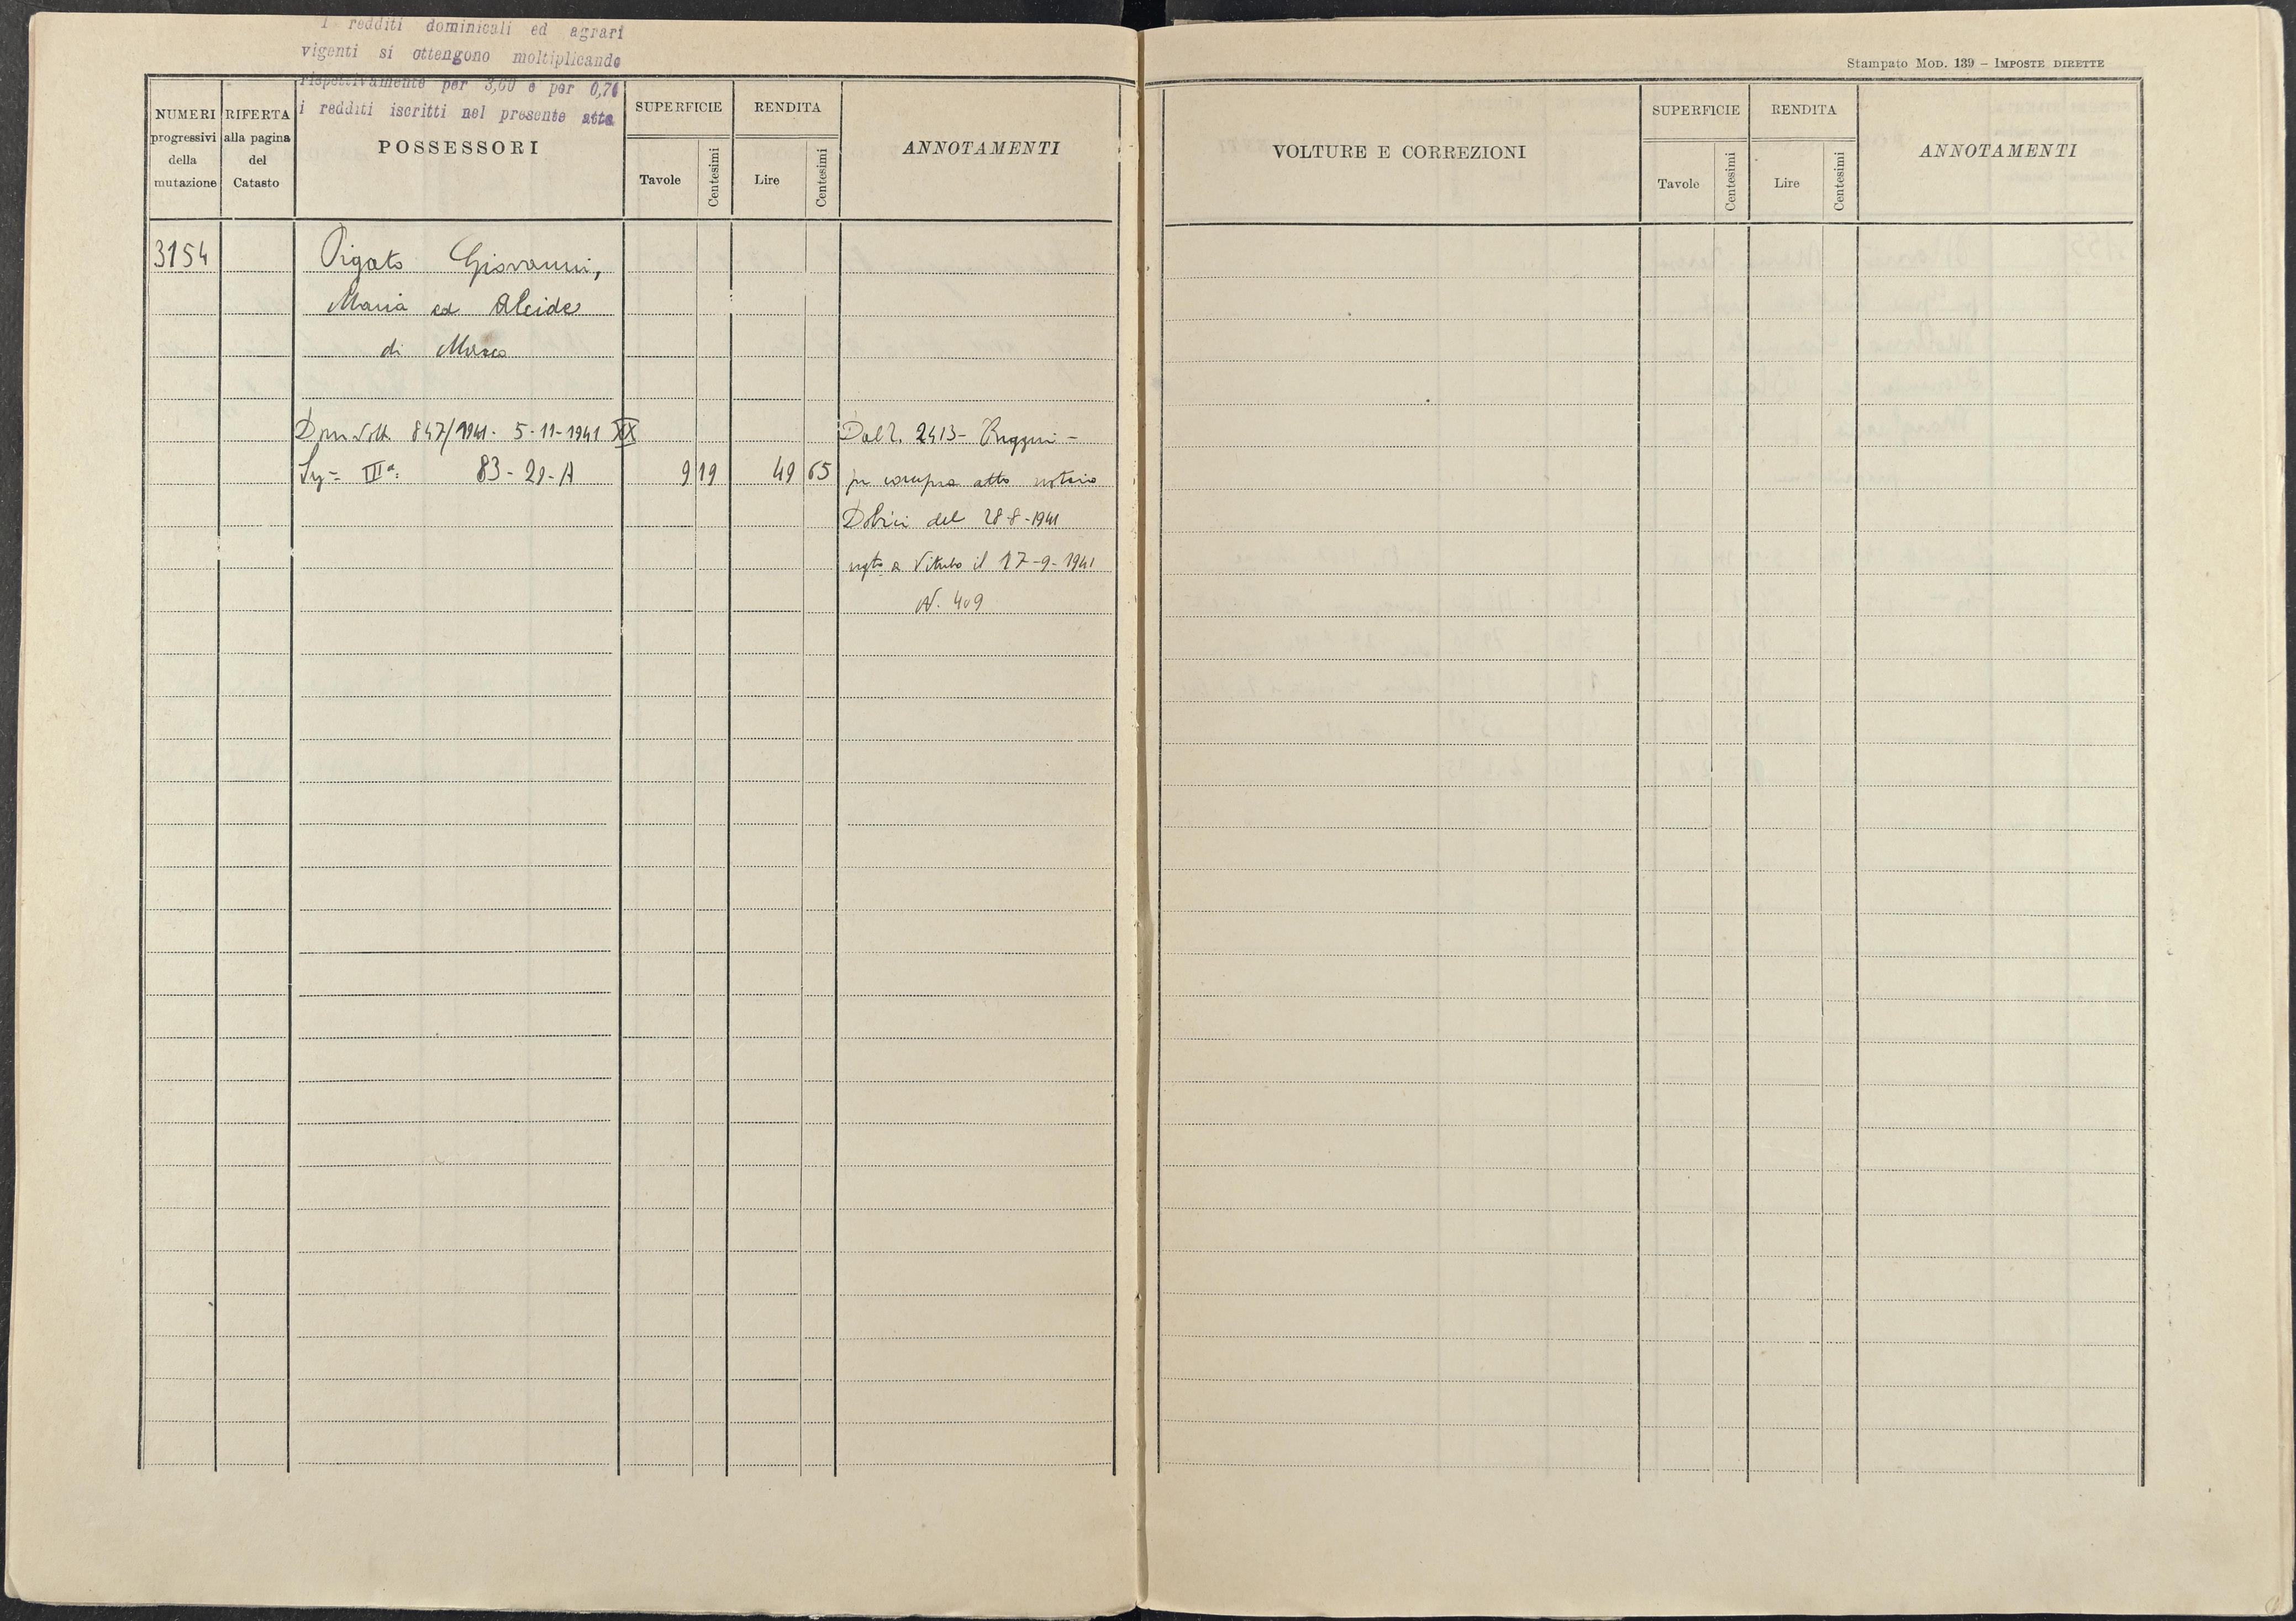 I redditi dominicali ed agrari
vigenti si ottengono moltiplicando
rispettivamente per 3,60 e per 0,70
i redditi iscritti nel presente atto
NUMERI
progressivi
della
mutazione
RIFERTA
alla pagina
del
Catasto
POSSESSORI
SUPERFICIE
Tavole
Centesimi
RENDITA
Lire
Centesimi
ANNOTAMENTI
3154
Pigato Giovanni,
Maria ed Alcide
di Marco
Dom. Volt. 847/1941 - 5-11-1941 XX
IIIª: 83-29-A 9 19 49 65
Dal 2413 -
per compra atto notaio
del 28-8-1941
regto a Viterbo il 17-9-1941
N. 409
Stampato MOD. 139 – IMPOSTE DIRETTE
VOLTURE E CORREZIONI
SUPERFICIE
Tavole
Centesimi
RENDITA
Lire
Centesimi
ANNOTAMENTI